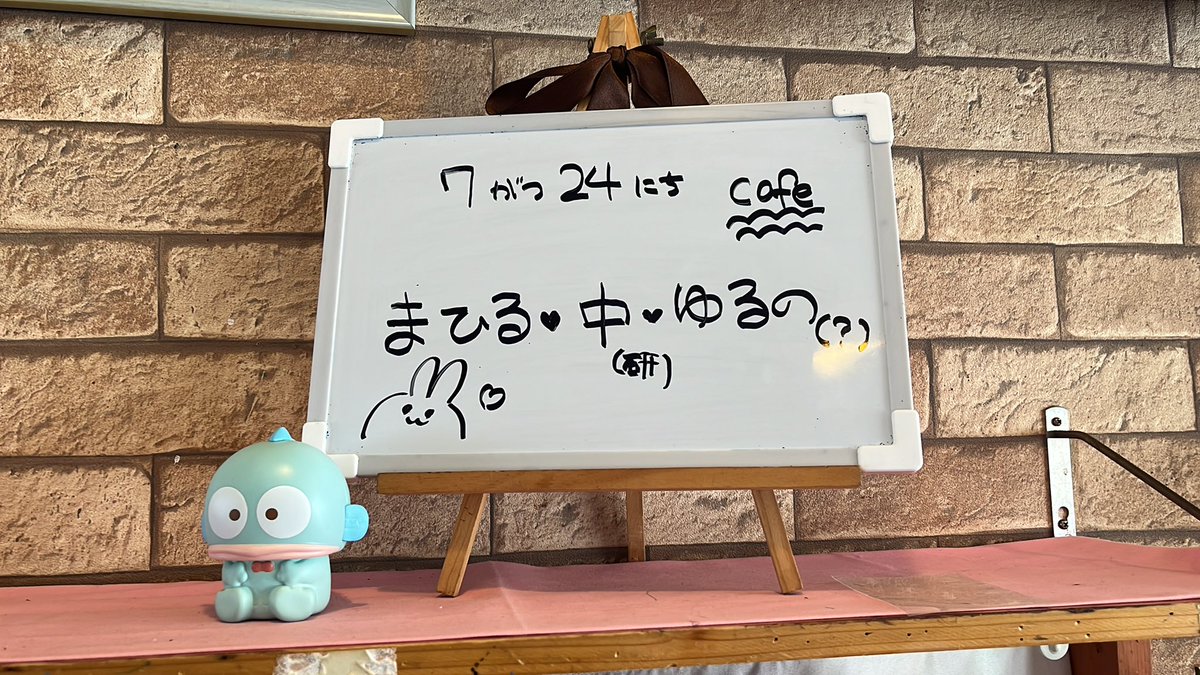 7がつ24にち
cafe
まひる♥中♥ゆるの(?)
(研)